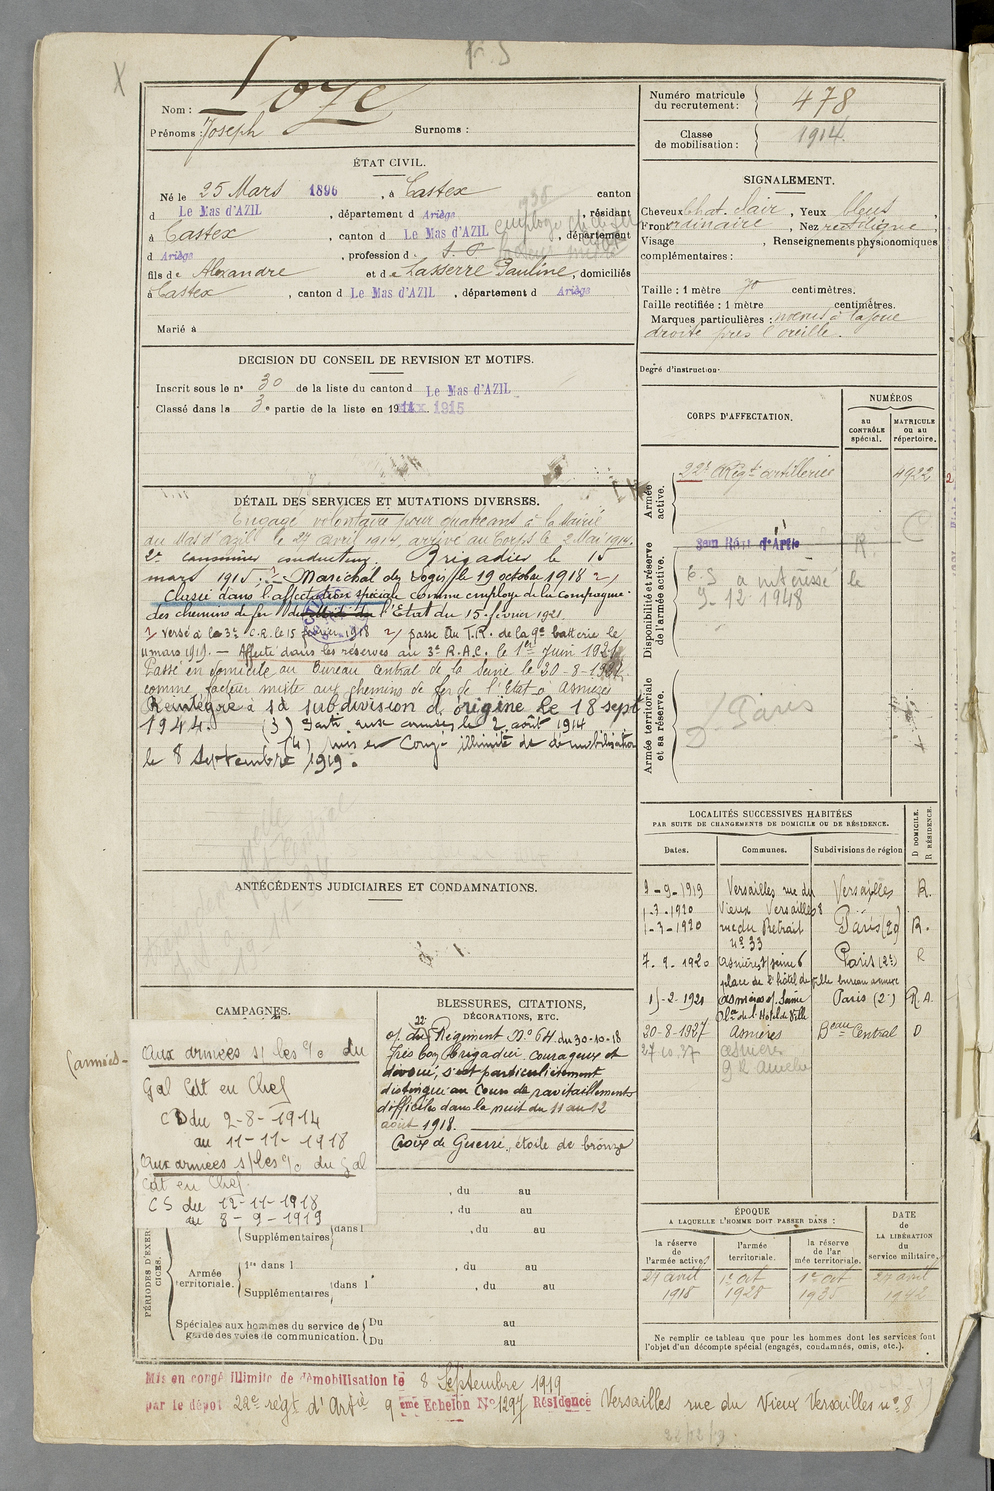 X
Nom : Foze
Prénoms : Joseph Surnoms :
Numéro matricule du recrutement : 478
Classe de mobilisation : 1914
ÉTAT CIVIL.
Né le 25 Mars 1896, à Castex canton
d Le Mas d'AZIL, département d Ariège, résidant
à Castex, canton d Le Mas d'AZIL, département
d Ariège, profession de S. P.
fils de Alexandre et de Lasserre Pauline, domiciliés
à Castex, canton d Le Mas d'AZIL, département d Ariège
Marié à
SIGNALEMENT.
Cheveux chat. clair, Yeux bleus,
Front ordinaire, Nez rectiligne,
Visage , Renseignements physionomiques
complémentaires :
Taille : 1 mètre 70 centimètres.
Taille rectifiée : 1 mètre centimètres.
Marques particulières : nœvus à la joue
droite près l'oreille.
Degré d'instruction.
DECISION DU CONSEIL DE REVISION ET MOTIFS.
Inscrit sous le n° 30 de la liste du canton d Le Mas d'AZIL
Classé dans la 3e partie de la liste en 1915
DÉTAIL DES SERVICES ET MUTATIONS DIVERSES.
Engagé volontaire pour quatre ans à la Mairie
du Mas d'Azil le 27 avril 1914, arrivé au Corps le 2 Mai 1914.
2e canonnier conducteur. Brigadier le 15
mars 1915. Maréchal des logis le 19 octobre 1918 2/
Classé dans l'affectation spéciale comme employé de la Compagnie
des chemins de fer de l'Etat du 15 février 1921
1/ Versé à la 3e C.R. le 15 février 1918 2/ passe au T.R. de la 9e batterie le
11 mars 1919. — Affecté dans les réserves au 3e R.A.C. le 1er Juin 1921
Passé en domicile au Bureau Central de la Seine le 30-8-1927
comme facteur mixte aux chemins de fer de l'Etat à Asnières
Réintégré à sa subdivision d'origine le 18 sept
1944. (3) Parti aux armées le 2 août 1914
(4) mis en Congé illimité de démobilisation
le 8 Septembre 1919.
CORPS D'AFFECTATION.
NUMÉROS
au CONTRÔLE spécial.
MATRICULE ou au répertoire.
Armée active.
22e Régt artillerie 4922
Disponibilité et réserve de l'armée active.
R.
C
C.S a intéressé le
9-12-1948
Armée territoriale et sa réserve.
D/ Paris
LOCALITÉS SUCCESSIVES HABITÉES
PAR SUITE DE CHANGEMENTS DE DOMICILE OU DE RÉSIDENCE.
Dates. Communes. Subdivisions de région D DOMICILE. R RÉSIDENCE.
9-9-1919 Versailles rue du Versailles R.
1-3-1920 Vieux Versailles 8
1-3-1920 rue du Retrait Paris (20) R.
n° 33
7-2-1920 Asnières s/ seine 6 Paris (2e) R
place de l'hôtel de ville bureau annexe
15-2-1921 Asnières s/ Seine Paris (2e) R.A.
Pl. de l'Hotel de Ville
30-8-1927 Asnières Beau Central D
27 10 37 Asnières
9 R Amélie
ANTÉCÉDENTS JUDICIAIRES ET CONDAMNATIONS.
CAMPAGNES.
(armées-
Aux armées s/ les o/o du
Gal Cdt en Chef
CD du 2-8-1914
au 11-11-1918
Aux armées s/ les o/o du Gal
Cdt en Chef.
CS du 12-11-1918
au 8-9-1919
BLESSURES, CITATIONS,
DÉCORATIONS, ETC.
O/ du 22e Régiment N° 64 du 30-10-18
Très bon Brigadier courageux et
dévoué, s'est particulièrement
distingué au cours de ravitaillements
difficiles dans la nuit du 11 au 12
août 1918.
Croix de Guerre, étoile de bronze
PÉRIODES D'EXERCICES.
, du au
, du au
Supplémentaires dans l , du au
Armée territoriale.
1re dans l , du au
Supplémentaires dans l , du au
Spéciales aux hommes du service de
garde des voies de communication.
Du au
Du au
ÉPOQUE
A LAQUELLE L'HOMME DOIT PASSER DANS :
DATE de LA LIBÉRATION du service militaire.
la réserve de l'armée active.
l'armée territoriale.
la réserve de l'armée territoriale.
27 avril 1er oct 1er oct 27 avril
1918 1928 1935 1942
Ne remplir ce tableau que pour les hommes dont les services font
l'objet d'un décompte spécial (engagés, condamnés, omis, etc.).
Mis en congé illimité de démobilisation le 8 Septembre 1919
par le dépôt 22e régt d'Artie 9 ème Echelon N° 1297 Résidence Versailles rue du Vieux Versailles n° 8